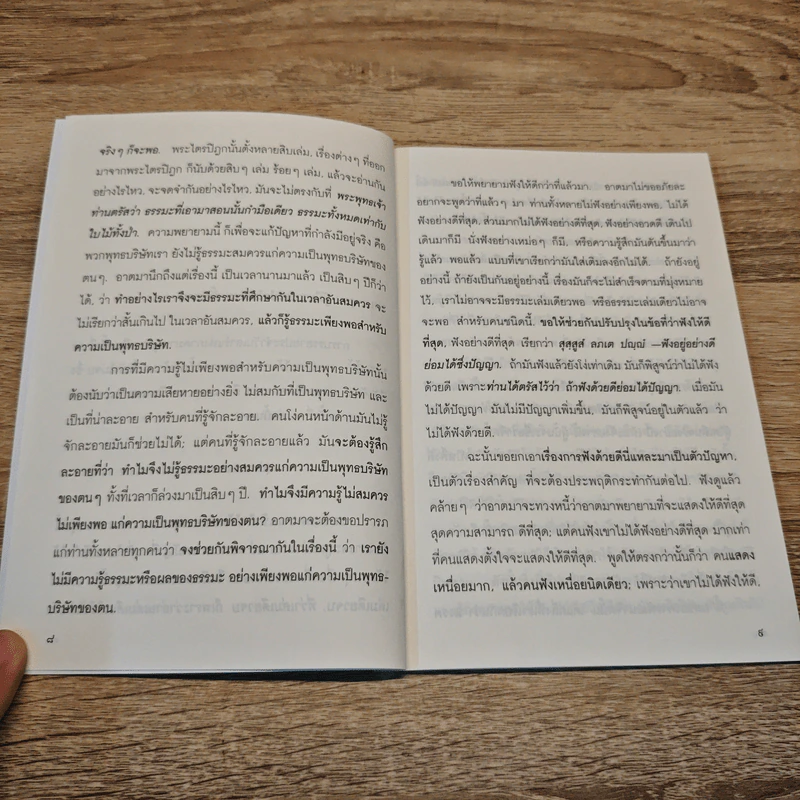 จริงๆ ก็จะพอ. พระไตรปิฎกนั้นตั้งหลายสิบเล่ม, เรื่องต่างๆ ที่ออก
มาจากพระไตรปิฎก ก็นับด้วยสิบๆ เล่ม ร้อยๆ เล่ม, แล้วจะอ่านกัน
อย่างไรไหว, จะจดจำกันอย่างไรไหว, มันจะไม่ตรงกับที่ พระพุทธเจ้า
ท่านตรัสว่า ธรรมะที่เอามาสอนนั้นกำมือเดียว ธรรมะทั้งหมดเท่ากับ
ใบไม้ทั้งป่า. ความพยายามนี้ ก็เพื่อจะแก้ปัญหาที่กำลังมีอยู่จริง คือ
พวกพุทธบริษัทเรา ยังไม่รู้ธรรมะสมควรแก่ความเป็นพุทธบริษัทของ
ตนๆ. อาตมานึกถึงแต่เรื่องนี้ เป็นเวลานานมาแล้ว เป็นสิบๆ ปีก็ว่า
ได้, ว่า ทำอย่างไรเราจึงจะมีธรรมะที่ศึกษากันในเวลาอันสมควร จะ
ไม่เรียกว่าสั้นเกินไป ในเวลาอันสมควร, แล้วก็รู้ธรรมะเพียงพอสำหรับ
ความเป็นพุทธบริษัท.
การที่มีความรู้ไม่เพียงพอสำหรับความเป็นพุทธบริษัทนั้น
ต้องนับว่าเป็นความเสียหายอย่างยิ่ง ไม่สมกับที่เป็นพุทธบริษัท และ
เป็นที่น่าละอาย สำหรับคนที่รู้จักละอาย. คนโง่คนหน้าด้านมันไม่รู้
จักละอายมันก็ช่วยไม่ได้; แต่คนที่รู้จักละอายแล้ว มันจะต้องรู้สึก
ละอายที่ว่า ทำไมจึงไม่รู้ธรรมะอย่างสมควรแก่ความเป็นพุทธบริษัท
ของตนๆ ทั้งที่เวลาก็ล่วงมาเป็นสิบๆ ปี. ทำไมจึงมีความรู้ไม่สมควร
ไม่เพียงพอ แก่ความเป็นพุทธบริษัทของตน? อาตมาจะต้องขอปรารภ
แก่ท่านทั้งหลายทุกคนว่า จงช่วยกันพิจารณากันในเรื่องนี้ ว่า เรายัง
ไม่มีความรู้ธรรมะหรือผลของธรรมะ อย่างเพียงพอแก่ความเป็นพุทธ-
บริษัทของตน.
๘
ขอให้พยายามฟังให้ดีกว่าที่แล้วมา. อาตมาไม่ขออภัยละ
อยากจะพูดว่าที่แล้วๆ มา ท่านทั้งหลายไม่ฟังอย่างเพียงพอ, ไม่ได้
ฟังอย่างดีที่สุด, ส่วนมากไม่ได้ฟังอย่างดีที่สุด, ฟังอย่างอวดดี เดินไป
เดินมาก็มี นั่งฟังอย่างเหม่อๆ ก็มี, หรือความรู้สึกมันดันขึ้นมาว่า
รู้แล้ว พอแล้ว แบบที่เขาเรียกว่ามันใส่เติมลงอีกไม่ได้. ถ้ายังอยู่
อย่างนี้ ถ้ายังเป็นกันอยู่อย่างนี้ เรื่องมันก็จะไม่สำเร็จตามที่มุ่งหมาย
ไว้, เราไม่อาจจะมีธรรมะเล่มเดียวพอ หรือธรรมะเล่มเดียวไม่อาจ
จะพอ สำหรับคนชนิดนี้. ขอให้ช่วยกันปรับปรุงในข้อที่ว่าฟังให้ดี
ที่สุด, ฟังอย่างดีที่สุด เรียกว่า สุสฺสูสํ ลภเต ปญฺญํ —ฟังอยู่อย่างดี
ย่อมได้ซึ่งปัญญา. ถ้ามันฟังแล้วยังโง่เท่าเดิม มันก็พิสูจน์ว่าไม่ได้ฟัง
ด้วยดี เพราะท่านได้ตรัสไว้ว่า ถ้าฟังด้วยดีย่อมได้ปัญญา. เมื่อมัน
ไม่ได้ปัญญา มันไม่มีปัญญาเพิ่มขึ้น, มันก็พิสูจน์อยู่ในตัวแล้ว ว่า
ไม่ได้ฟังด้วยดี.
ฉะนั้นขอยกเอาเรื่องการฟังด้วยดีนี่แหละมาเป็นตัวปัญหา,
เป็นตัวเรื่องสำคัญ ที่จะต้องประพฤติกระทำกันต่อไป. ฟังดูแล้ว
คล้ายๆ ว่าอาตมาจะทวงหนี้ว่าอาตมาพยายามที่จะแสดงให้ดีที่สุด
สุดความสามารถ ดีที่สุด; แต่คนฟังเขาไม่ได้ฟังอย่างดีที่สุด มากเท่า
ที่คนแสดงตั้งใจจะแสดงให้ดีที่สุด. พูดให้ตรงกว่านั้นก็ว่า คนแสดง
เหนื่อยมาก, แล้วคนฟังเหนื่อยนิดเดียว; เพราะว่าเขาไม่ได้ฟังให้ดี,
๙